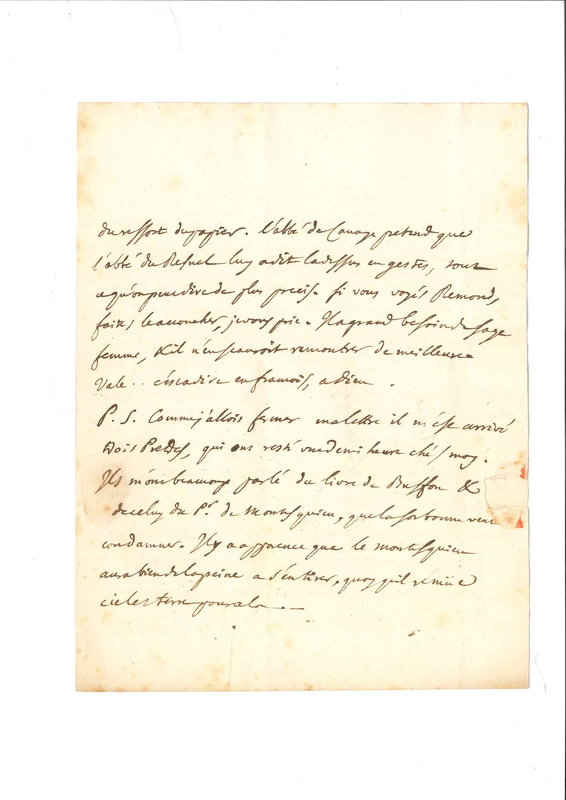 du ressort du papier. l'abbé de Canaye pretend que
l'abbé du Resnel luy a dit la dessus en gestes, tout
ce qu'on peut dire de plus precis. si vous voyés Remond,
faites le accoucher, je vous prie. Il a grand besoin de sage
femme, & il n'en scauroit rencontrer de meilleure.
Vale.. c'est a dire en francois, adieu.
P. S. Comme j'allois fermer ma lettre il m'est arrivé
trois Prestres, qui ont resté une demi heure chés moy.
Ils m'ont beaucoup parlé du livre de Buffon &
de celuy du Pt. de Montesquieu, que la sorbonne veut
condamner. Il y a apparence que le montesquieu
aura bien de la peine a s'en tirer, quoy qu'il remüe
ciel et terre pour cela.